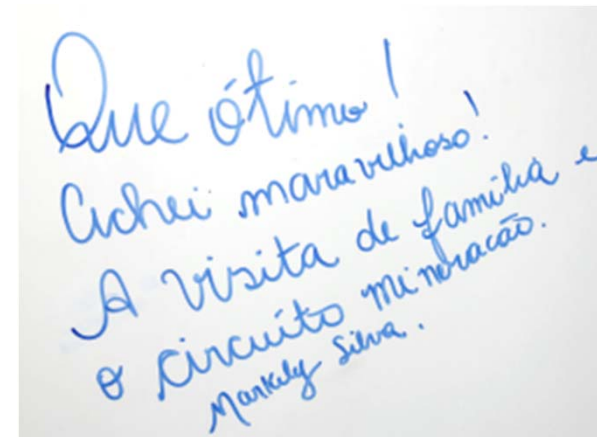 Que ótimo!
Achei maravilhoso!
A visita de família e
o circuíto mineracão.
Markely Silva.